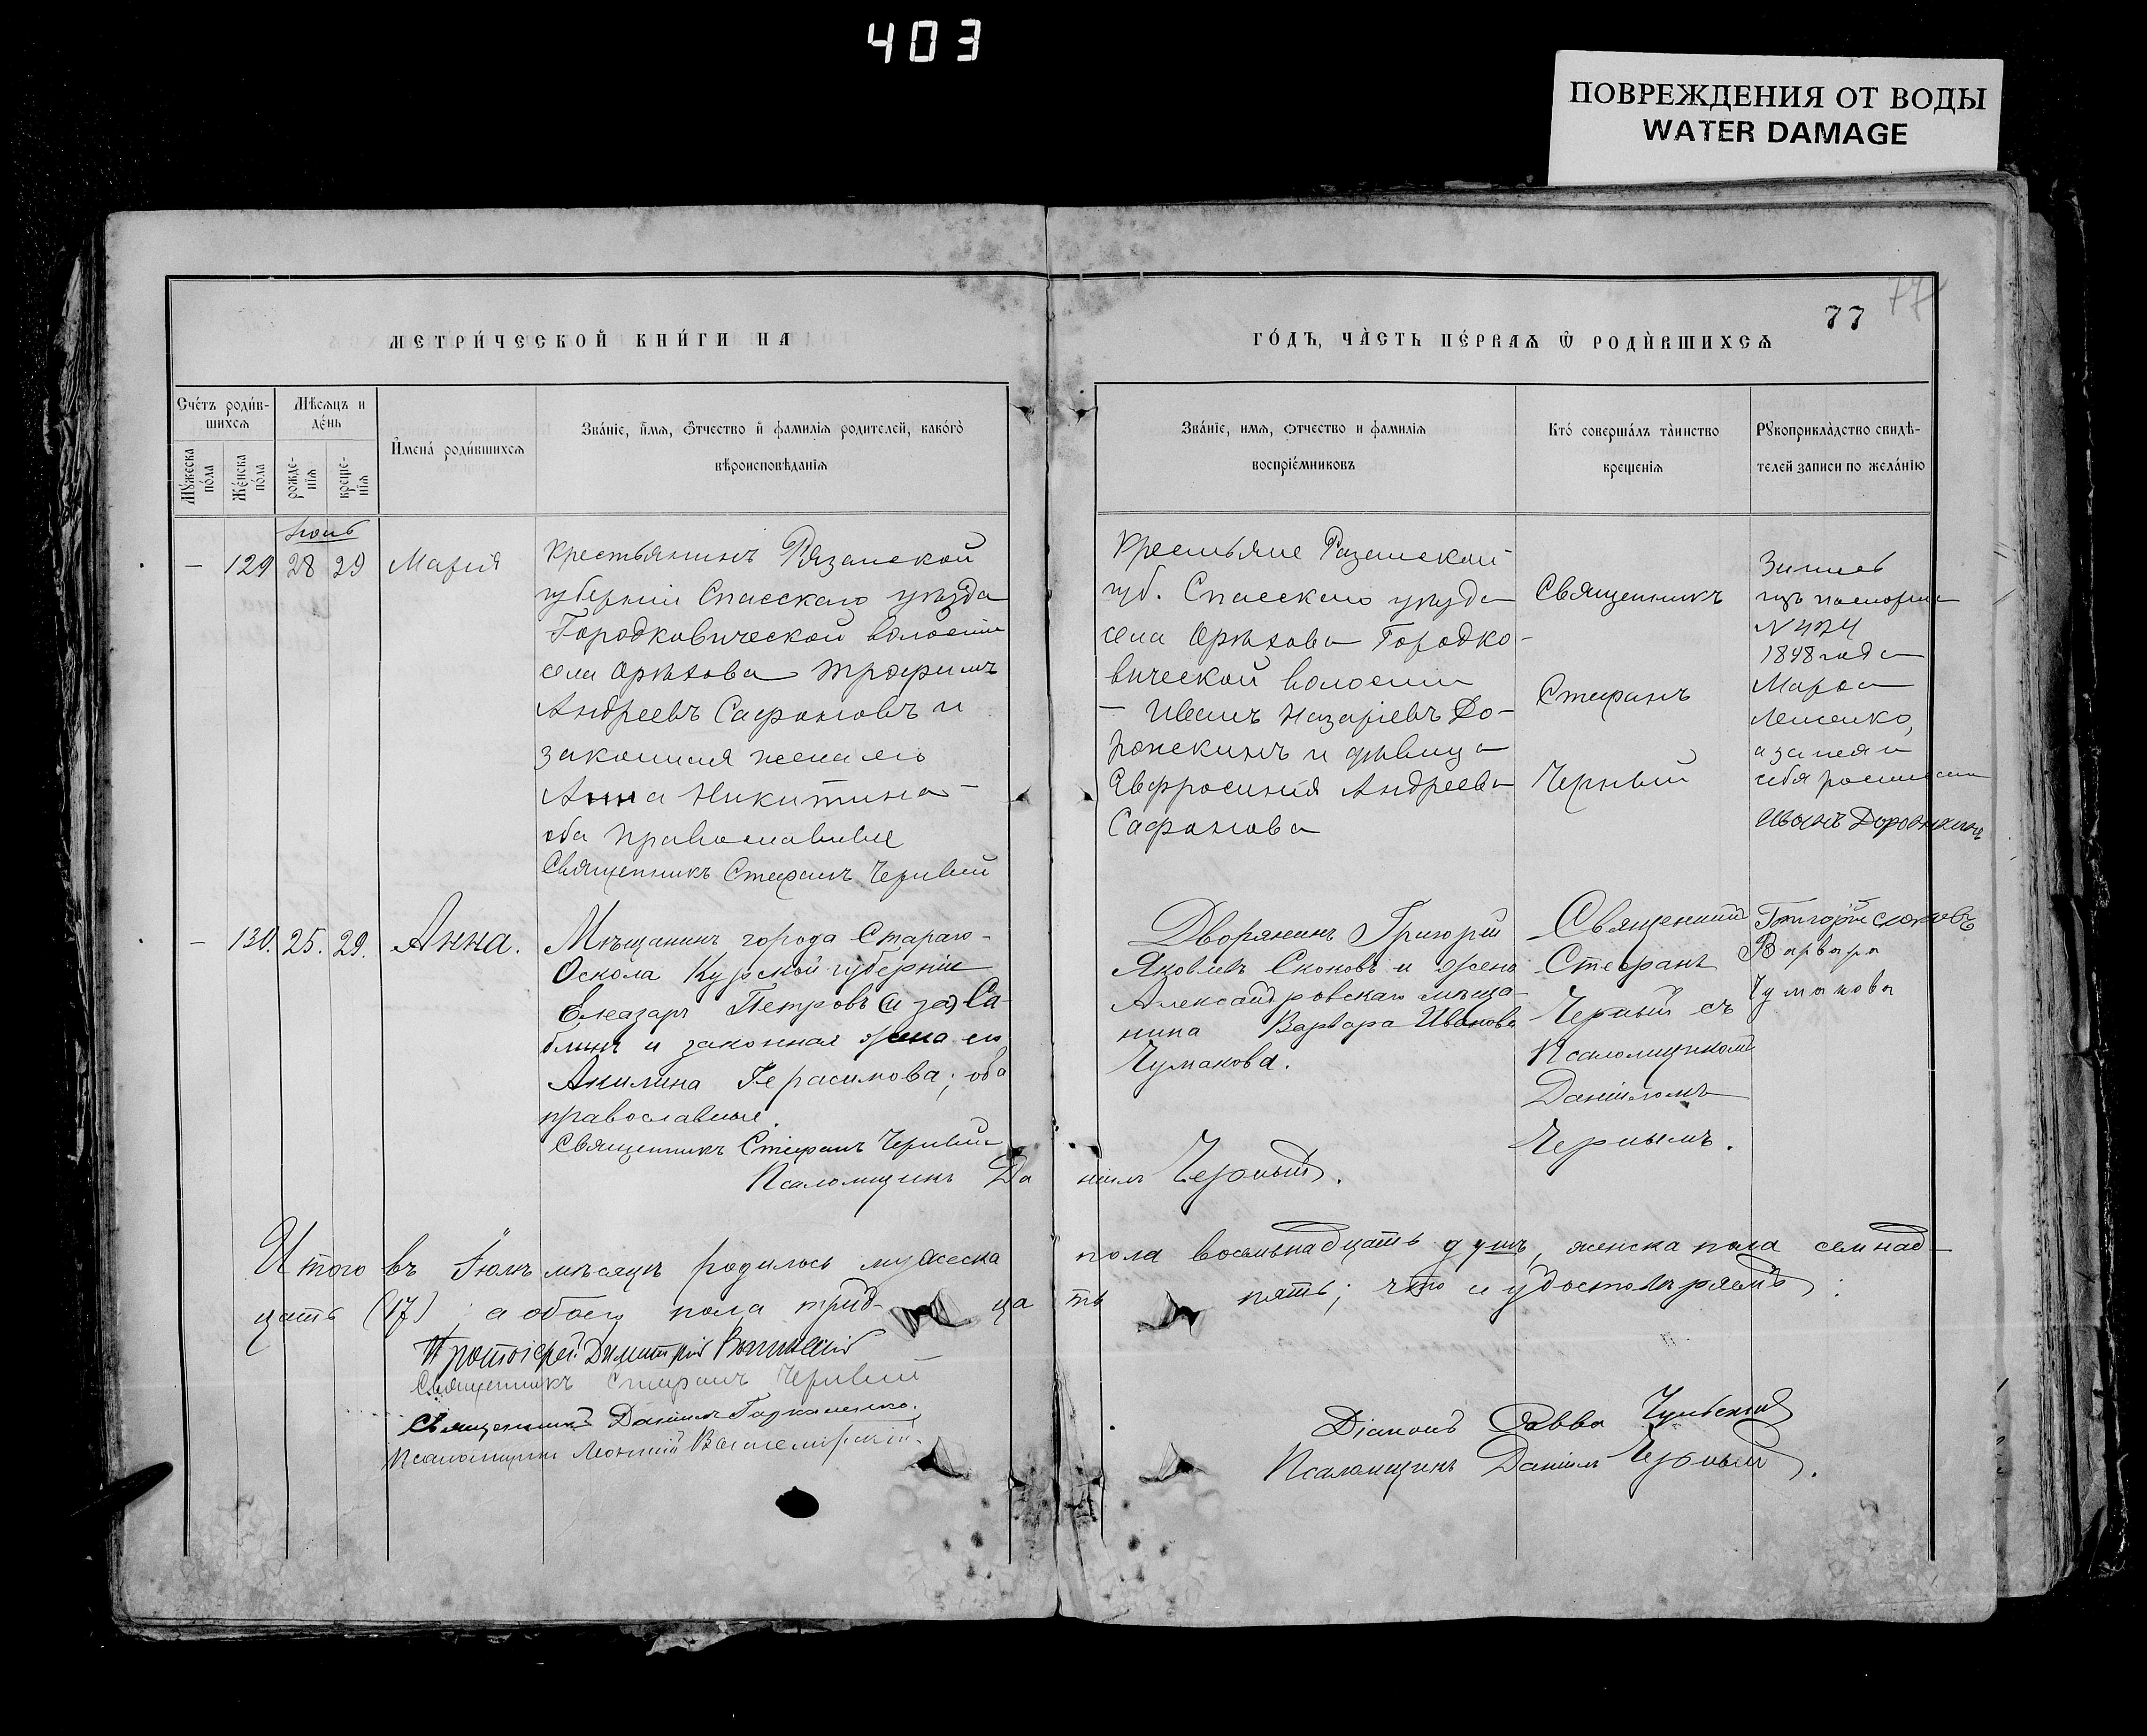 403
ПОВРЕЖДЕНИЯ ОТ ВОДЫ
WATER DAMAGE
77
77
МЕТРИ́ЧЕСКОЙ КНИ́ГИ НА
ГО́ДЪ, ЧА̀СТЬ ПЕ́РВАѦ Ѿ РОДЍВШИХСѦ
Сче́тъ роди́в-
шихсѧ
Мѣсѧцъ и
де́нь
Мꙋ́жеска
по́ла
Же́нска
по́ла
рожде-
нїѧ
креще-
нїѧ
И҆мена̀ роди́вшихсѧ
Зва́нїе, и҆́мѧ, ѻ҆́тчество и҆ фамилїѧ родителей, како́гѡ
вѣроисповѣданїѧ
Зва́нїе, имѧ, ѻтчество и фамилїѧ
воспрїе́мниковъ
Кто̀ соверша́лъ та̀инство
креще́нїѧ
Рꙋкоприкла̀дство свидѣ-
телей записи по жела́нїю
Іюль
— 129 28 29 Марія
крестьянинъ Рязанской
губерніи Спасскаго уѣзда
Городковической волости
села Орѣхова Трофимъ
Андреевъ Сафоновъ и
законная жена его
Анна Никитина
оба православные
Священникъ Стефанъ Черный
Крестьяне Разанской
губ. Спасскаго уѣзда
села Орѣхова Городко-
вической волости
— Иванъ Назаріевъ До-
рожкинъ и дѣвица
Евфросинія Андреева
Сафонова
Священникъ
Стефанъ
Черный
N 474
1848 года
а за нея и
себя
Иванъ Дорожкинъ
— 130. 25. 29. Анна.
Мѣщанинъ города Стараго-
Оскола Курской губерніи
Елеазаръ Петровъ (и за) Са-
блинъ и законная жена его
Акилина Герасимова; оба
православные.
Священникъ Стефанъ Черный
Псаломщикъ Даніилъ Черный.
Дворянинъ Григорій
Яковлевъ Скоковъ и жена
Александровскаго мѣща-
нина Варвара Иванова
Чумакова.
Священникъ
Стефанъ
Черный съ
Псаломщикомъ
Даніиломъ
Чернымъ.
Григорій Скоковъ
Варвара
Чумакова
Итого въ Іюлѣ мѣсяцѣ родилось мужеска пола восемьнадцать душъ, женска пола семнад-
цать (17); а обоего пола тридцать пять; что и удостовѣряемъ:
Протоіерей Димитрій
Священникъ Стефанъ Черный
Священникъ Даніилъ
Псаломщикъ Леонтій
Діаконъ Савва
Псаломщикъ Даніилъ Черный.